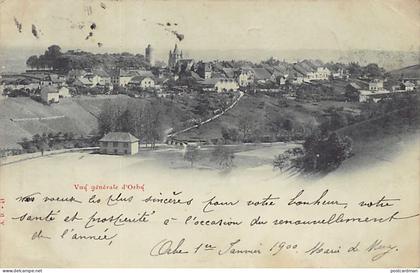 Vue générale d'Orbe
Nos vœux les plus sincères pour votre bonheur, votre
santé et prospérité à l'occasion du renouvellement
de l'année,
Orbe 1er Janvier 1900
postcardman
delcampe.net